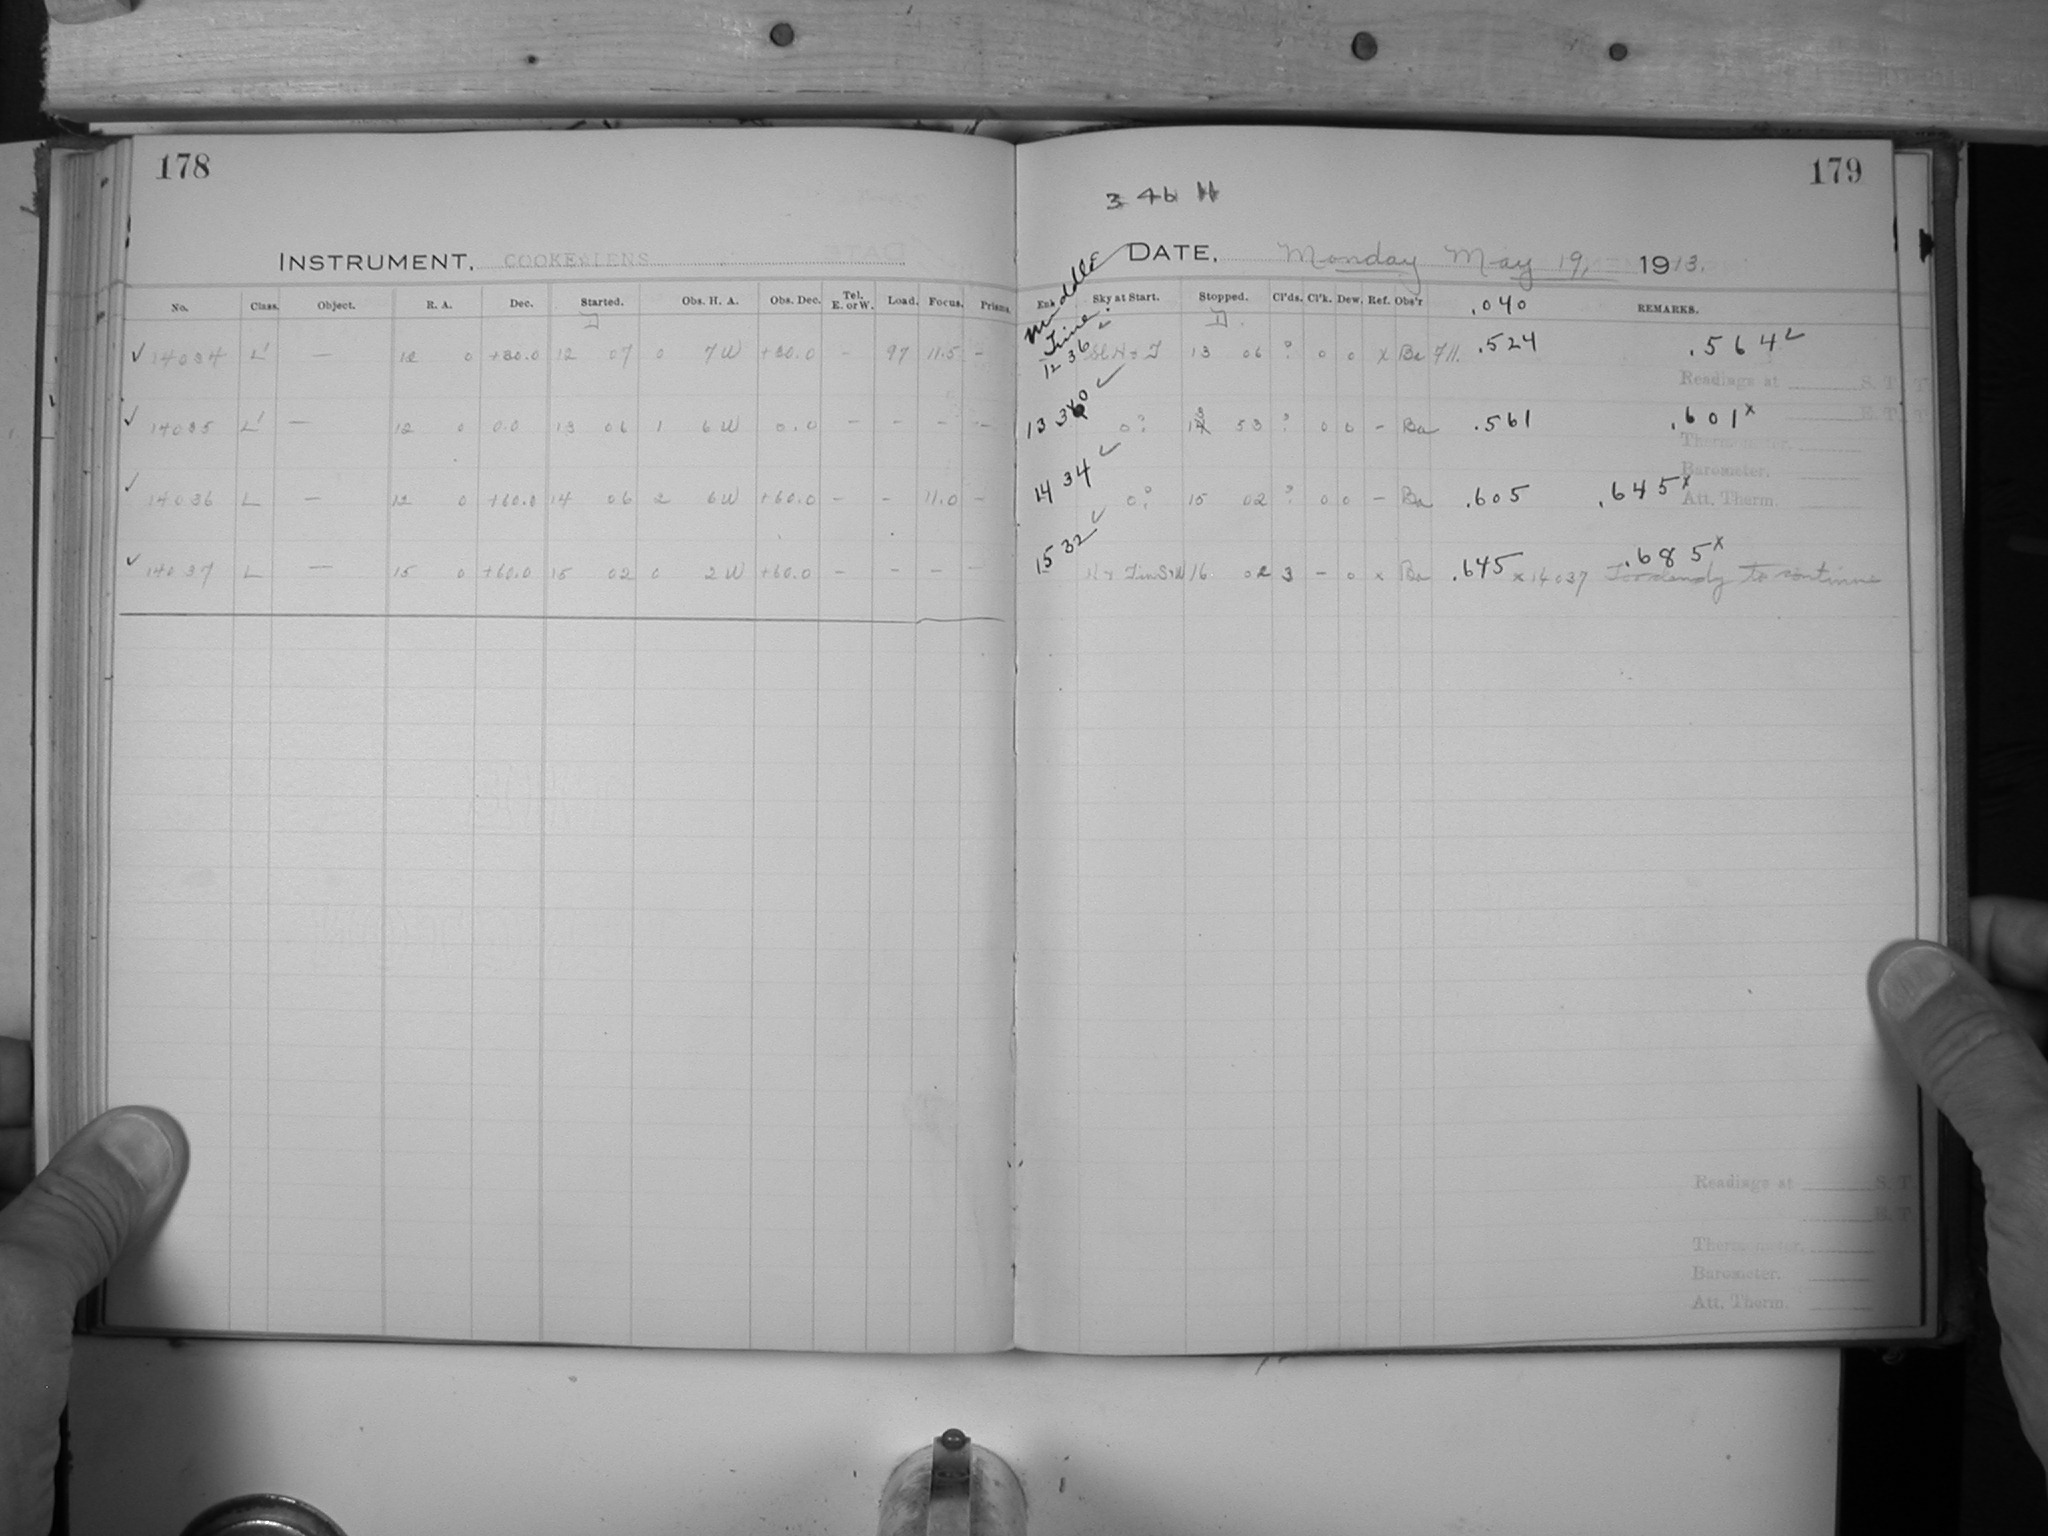 178
INSTRUMENT, COOKE LENS
No. Class. Object. R. A. Dec. Started. Obs. H. A. Obs. Dec. Tel. E. or W. Load. Focus. Prisms.
✓ 14034 L' — 12 0 +30.0 12 07 0 7W +30.0 - 97 11.5 -
✓ 14035 L' — 12 0 0.0 13 06 1 6W 0.0 - - - -
✓ 14036 L — 12 0 +60.0 14 06 2 6W +60.0 - - 11.0 -
✓ 14037 L — 15 0 +60.0 15 02 0 2W +60.0 - - - -
179
3 46 H
DATE, Monday May 19, 1913.
Middle Time.
Sky at Start. Stopped. Cl'ds. Cl'k. Dew. Ref. Obs'r .040 REMARKS.
12 36 ✓ 13 06 ? 0 0 x Ba 711. .524 .564 ✓
Readings at S. T.
E. T.
13 30 ✓ 0? 13 53 ? 0 0 - Ba .561 .601 x
Thermometer.
Barometer.
14 34 ✓ 0? 15 02 ? 0 0 - Ba .605 .645 x
Att. Therm.
15 32 ✓ 16 02 3 - 0 x Ba .645 .685 x
x 14037 Too cloudy to continue
Readings at S. T.
E. T.
Thermometer.
Barometer.
Att. Therm.